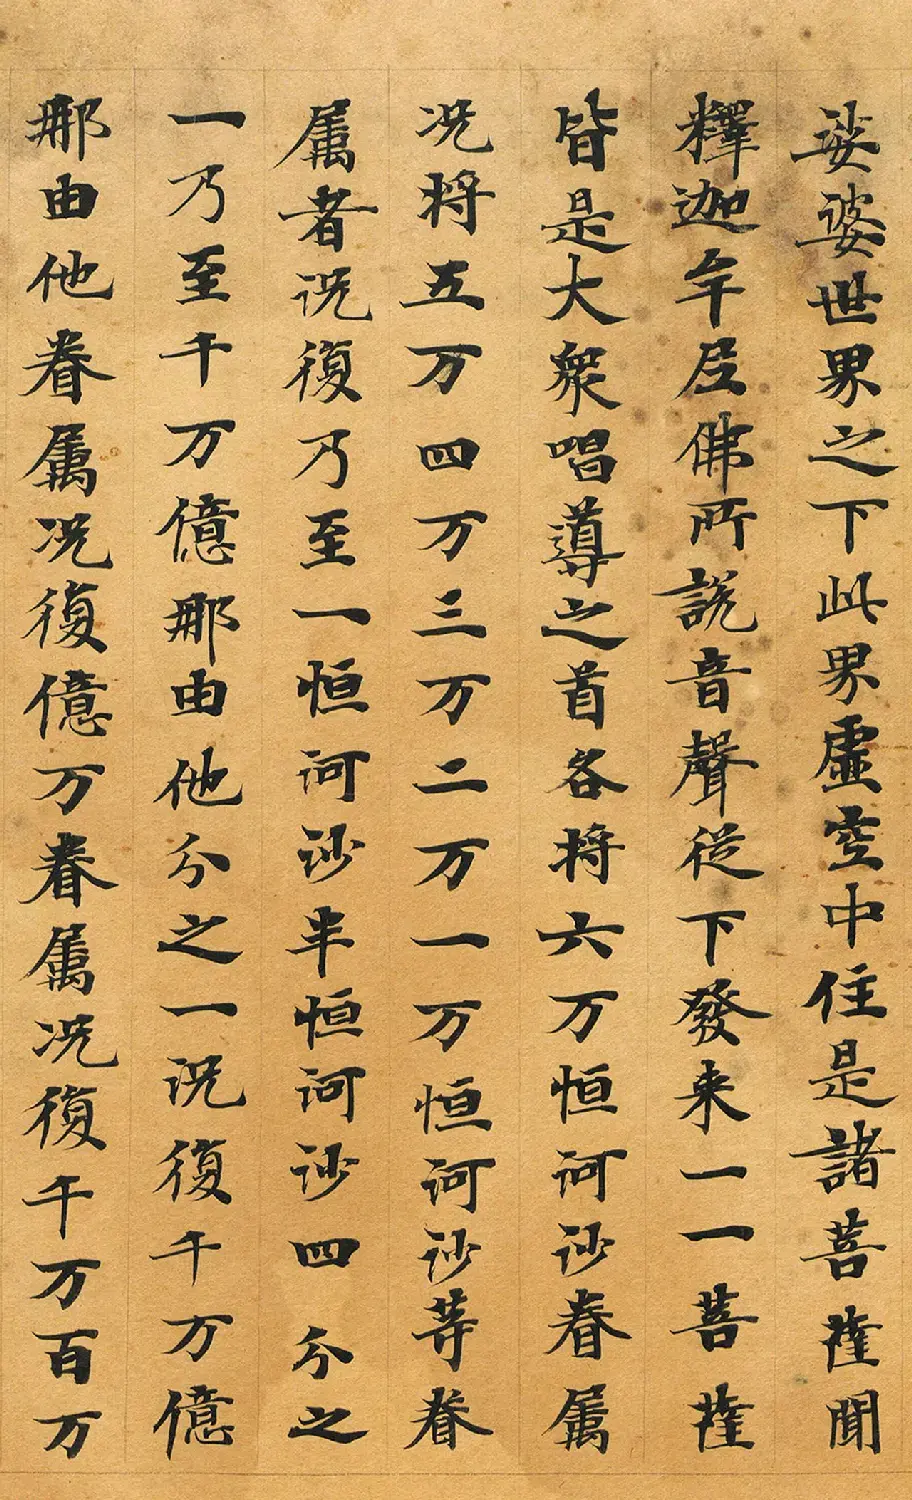 娑婆世界之下此界虛空中住是諸菩薩聞
釋迦牟尼佛所說音聲從下發来一一菩薩
皆是大衆唱導之首各將六万恒河沙眷属
况將五万四万三万二万一万恒河沙等眷
属者况復乃至一恒河沙半恒河沙四分之
一乃至千万億那由他分之一况復千万億
那由他眷属况復億万眷属况復千万百万